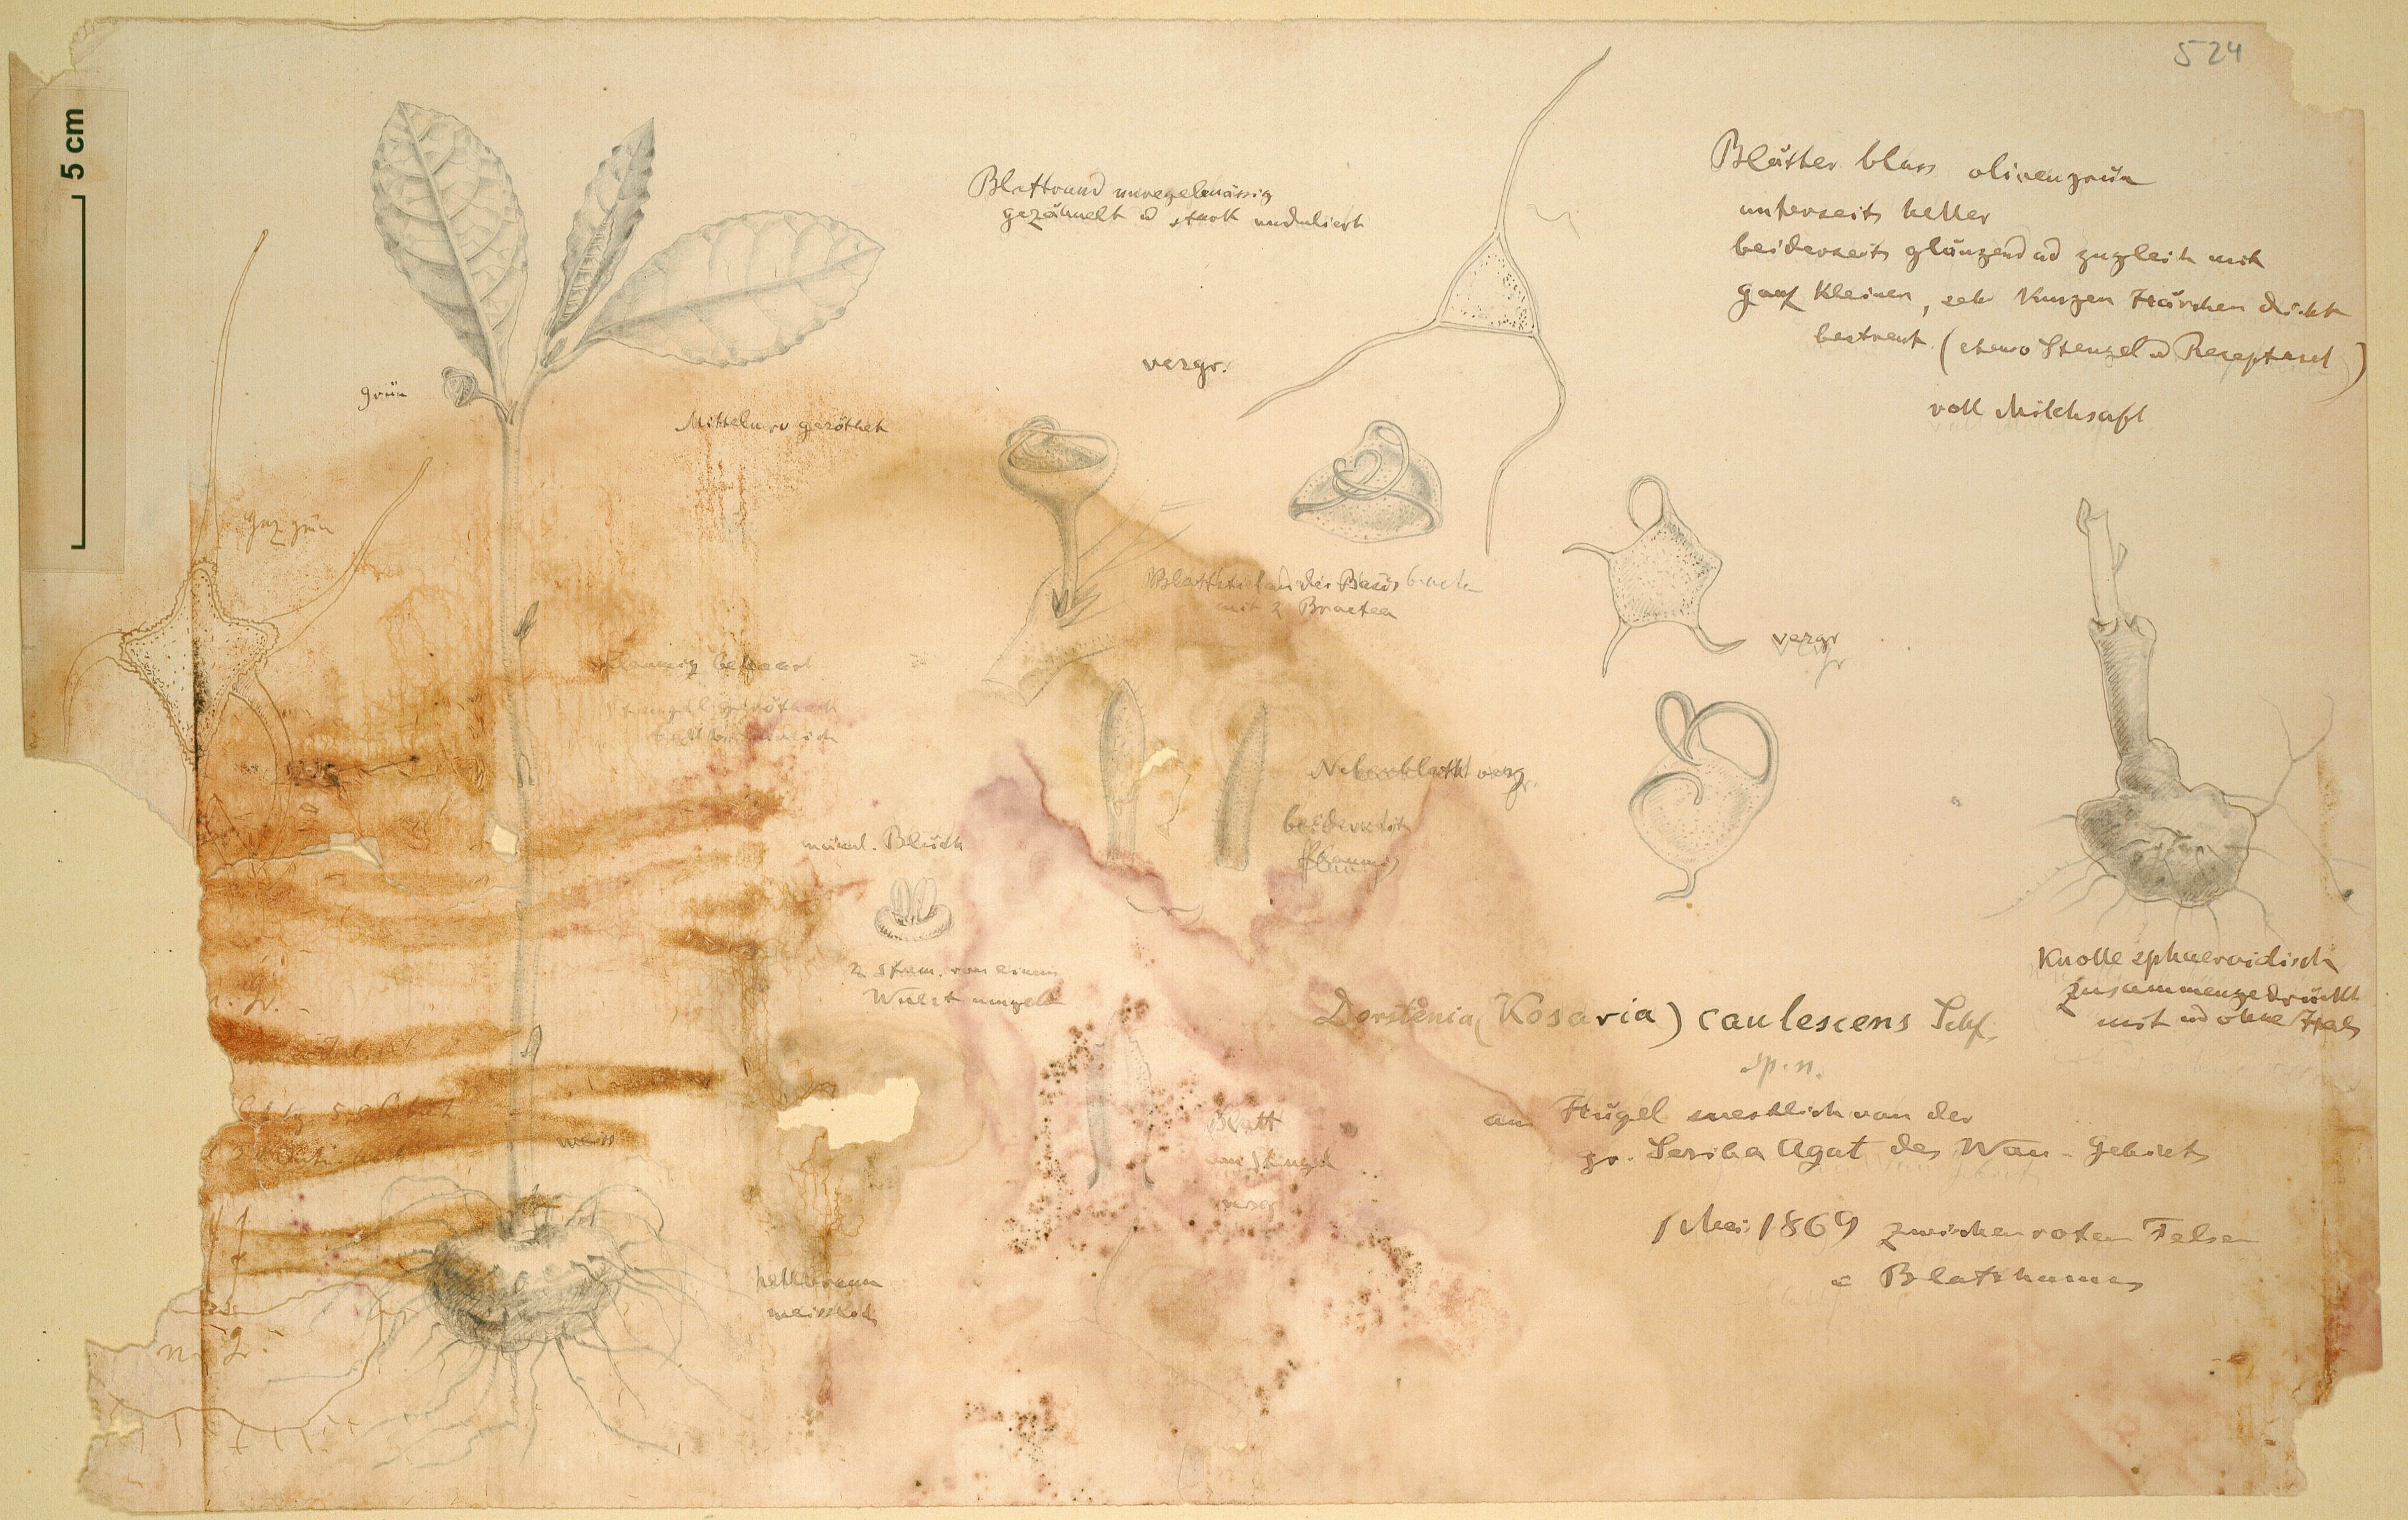 524
5 cm
Blätter blass olivengrün
unterseits heller
beiderseits glänzend ud zugleich mit
ganz kleinen, sehr kurzen Härchen dicht
bestreut (ebenso Stengel u Receptacel)
voll Milchsaft
Blattrand unregelmässig
gezähnelt u stark unduliert
vergr.
grün
Mittelnerv geröthet
ganz grün
Blattstiel an der Basis
mit 2 Bracteen
vergr
flaumig behaart
Stengel geröthet
Nebenblatt vergr.
beiderseits
flaumig
männl. Blüth
2 Stam. von einem
Wulst umgeb
Knolle sphaeroidisch
zusammengedrückt
mit ud ohne Hals
Dorstenia (Kosaria) caulescens Schf.
sp. n.
am Hügel westlich von der
gr. Seriba Agat des Wau-Gebiets
1 Mai 1869 zwischen roten Felsen
Blatthumus
weiss
Blatt
am Stengel
vergr
hellbraun
n. 2.